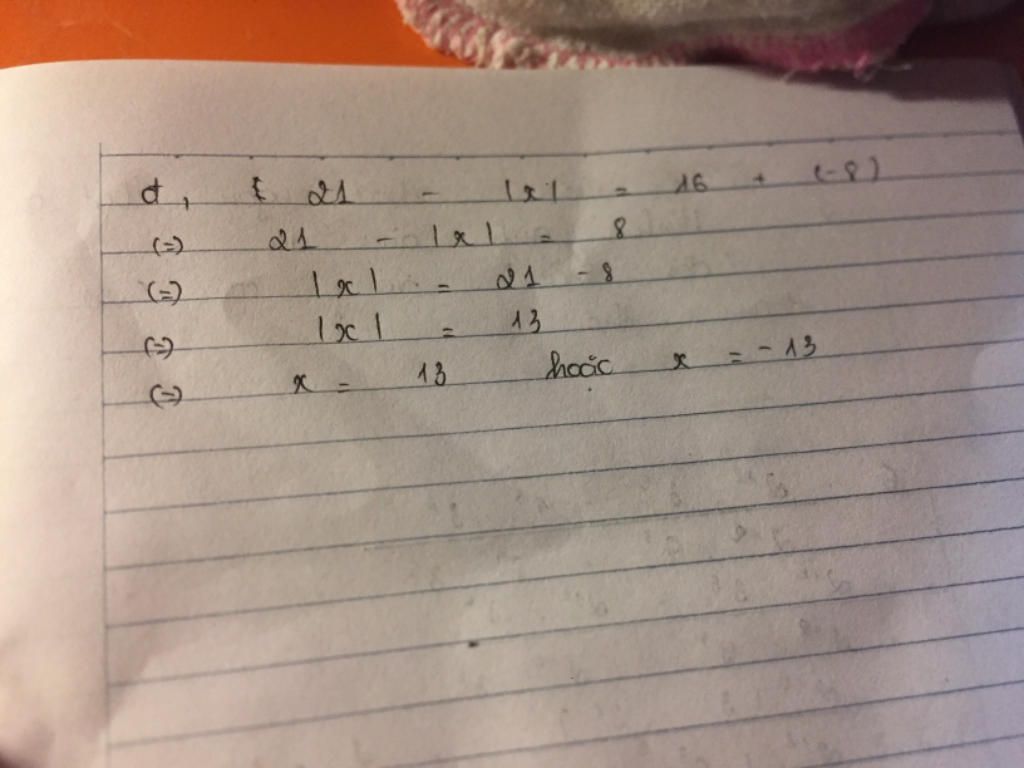 d, 21 - |x| = 16 + (-8)
(=) 21 - |x| = 8
(=) |x| = 21 - 8
(=) |x| = 13
(=) x = 13 hoặc x = -13